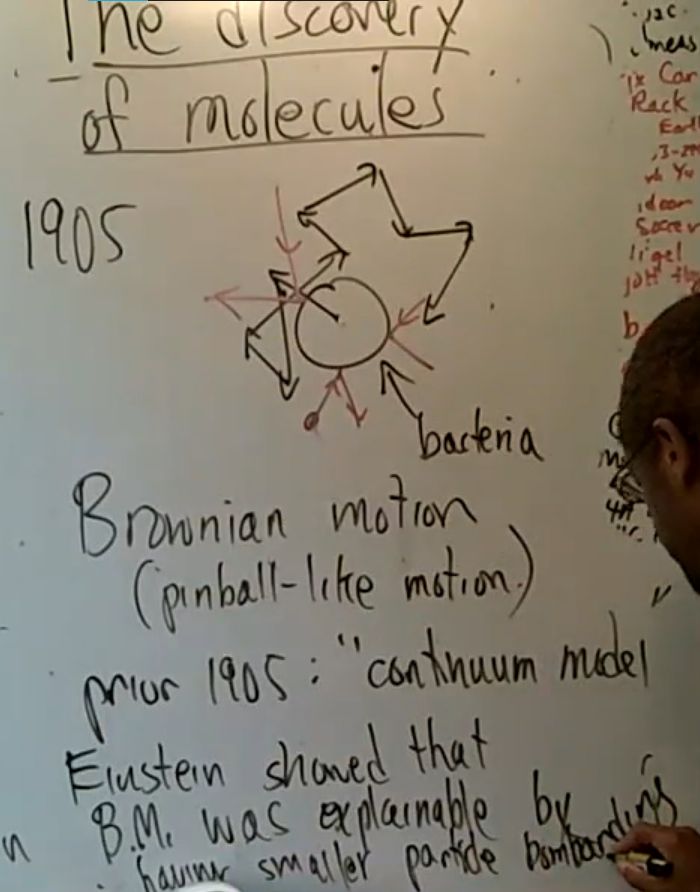 The discovery
of molecules
1905
bacteria
Brownian motion
(pinball-like motion.)
prior 1905 : "continuum model"
Einstein showed that
B.M. was explainable by
having smaller particle bombarding
Rack